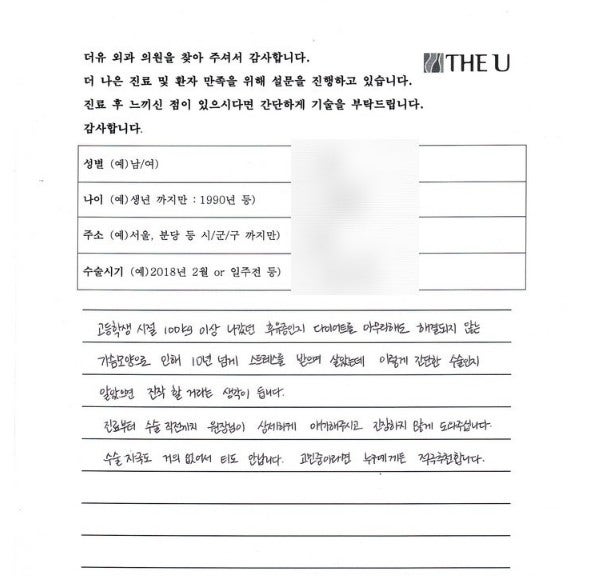 더유 외과 의원을 찾아 주셔서 감사합니다.
THE U
더 나은 진료 및 환자 만족을 위해 설문을 진행하고 있습니다.
진료 후 느끼신 점이 있으시다면 간단하게 기술을 부탁드립니다.
감사합니다.
성별 (예)남/여)
나이 (예)생년 까지만 : 1990년 등)
주소 (예)서울, 분당 등 시/군/구 까지만)
수술시기 (예)2018년 2월 or 일주전 등)
고등학생 시절 100kg 이상 나갔던 후유증인지 다이어트를 아무리해도 해결되지 않는
가슴모양으로 인해 10년 넘게 스트레스를 받으며 살았는데 이렇게 간단한 수술인지
알았으면 진작 할 거라는 생각이 듭니다.
진료부터 수술 직전까지 원장님이 상세하게 얘기해주시고 긴장하지 않게 도와주십니다.
수술 자국도 거의 없어서 티도 안납니다. 고민중이라면 누구에게든 적극추천합니다.